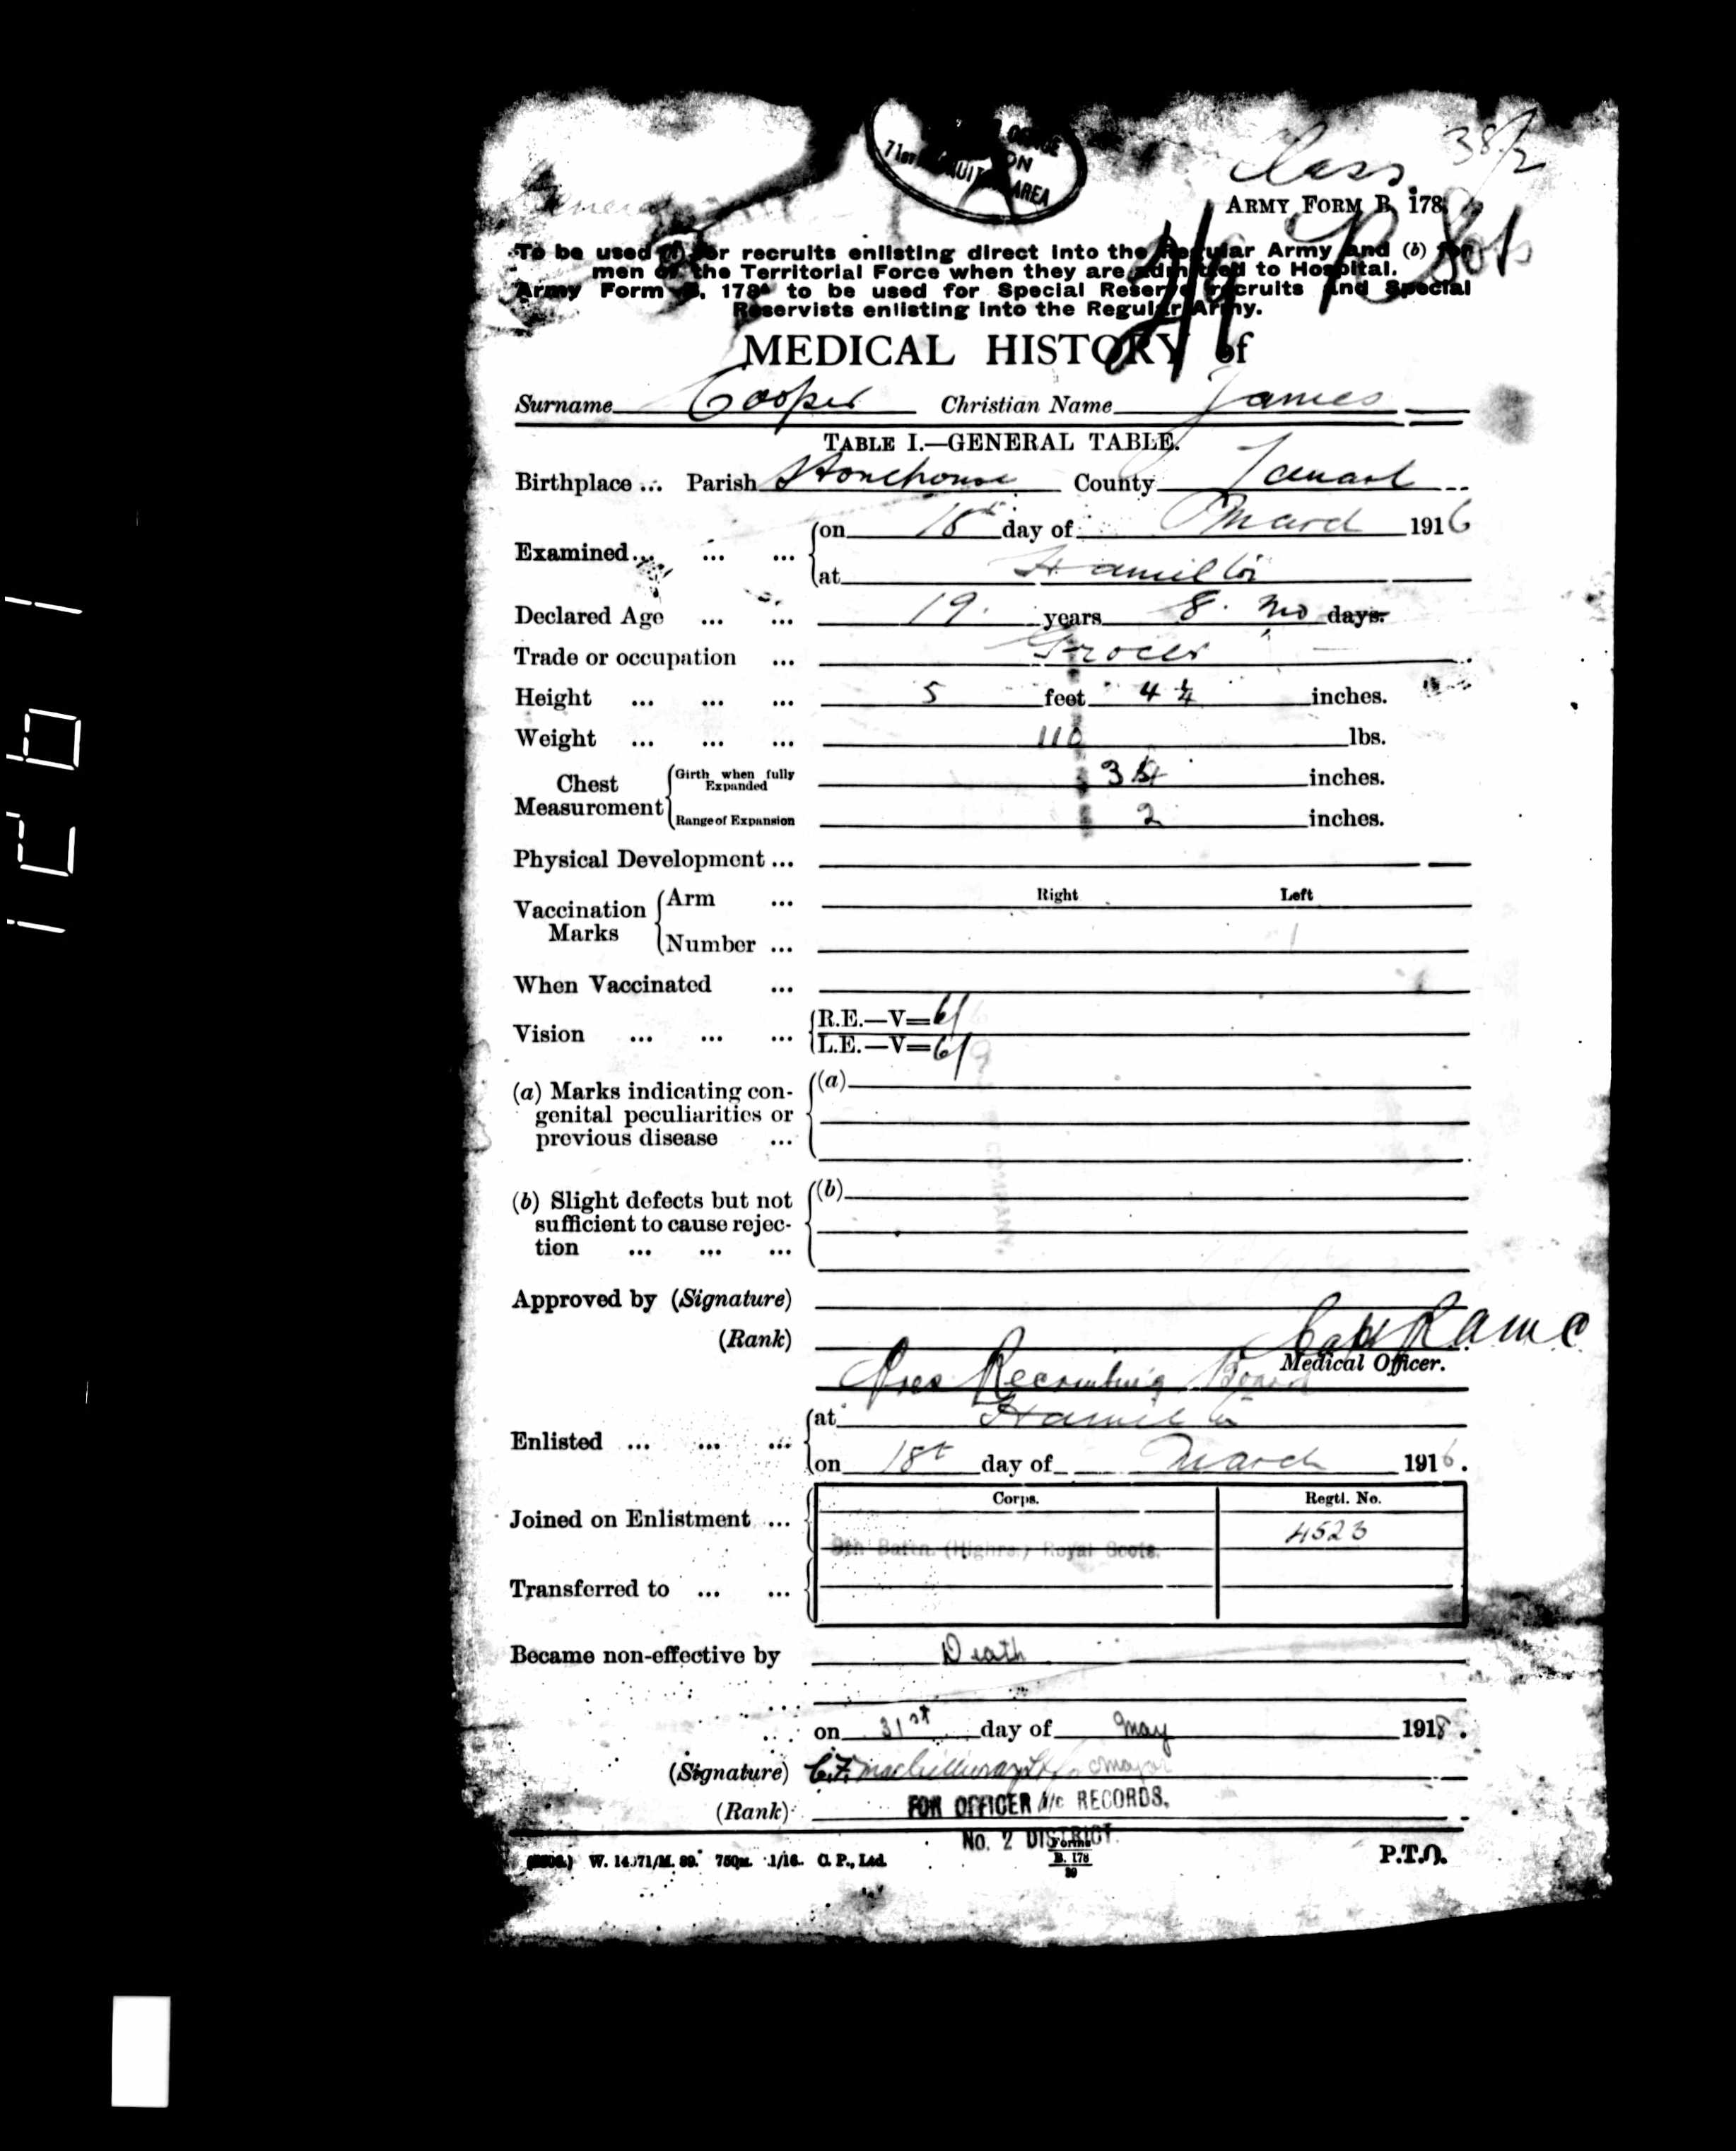 71st AREA
Class 38/2
ARMY FORM B. 178
2/9 R Scots
To be used (a) for recruits enlisting direct into the Regular Army and (b) for
men of the Territorial Force when they are admitted to Hospital.
Army Form B. 178A to be used for Special Reserve recruits and Special
Reservists enlisting into the Regular Army.
MEDICAL HISTORY of
Surname Cooper Christian Name James
TABLE I.—GENERAL TABLE.
Birthplace ... Parish Stonehouse County Lanark
Examined ... ... ... on 18th day of March 1916
at Hamilton
Declared Age ... ... 19 years 8 mo days.
Trade or occupation ... Grocer
Height ... ... ... 5 feet 4 1/4 inches.
Weight ... ... ... 110 lbs.
Chest Measurement Girth when fully Expanded inches.
Range of Expansion 2 inches.
Physical Development ...
Right Left
Vaccination Marks Arm ...
Number ... 1
When Vaccinated ...
Vision ... ... ... R.E.—V=6/
L.E.—V=6/9
(a) Marks indicating con- (a)
genital peculiarities or
previous disease ...
(b) Slight defects but not (b)
sufficient to cause rejec-
tion ... ... ...
Approved by (Signature)
(Rank) Capt RAMC
Medical Officer.
Pres Recruiting Board
Enlisted ... ... ... at Hamilton
on 18t day of March 1916.
Corps. Regtl. No.
Joined on Enlistment ... 4523
9th Battn. (Highrs.) Royal Scots.
Transferred to ... ...
Became non-effective by Death
on 31st day of May 1918.
(Signature) C.F.
(Rank) FOR OFFICER i/c RECORDS,
No. 2 DISTRICT.
W. 14071/M. 89. 750m. 1/16. C. P., Ltd. Forms B. 178 39 P.T.O.